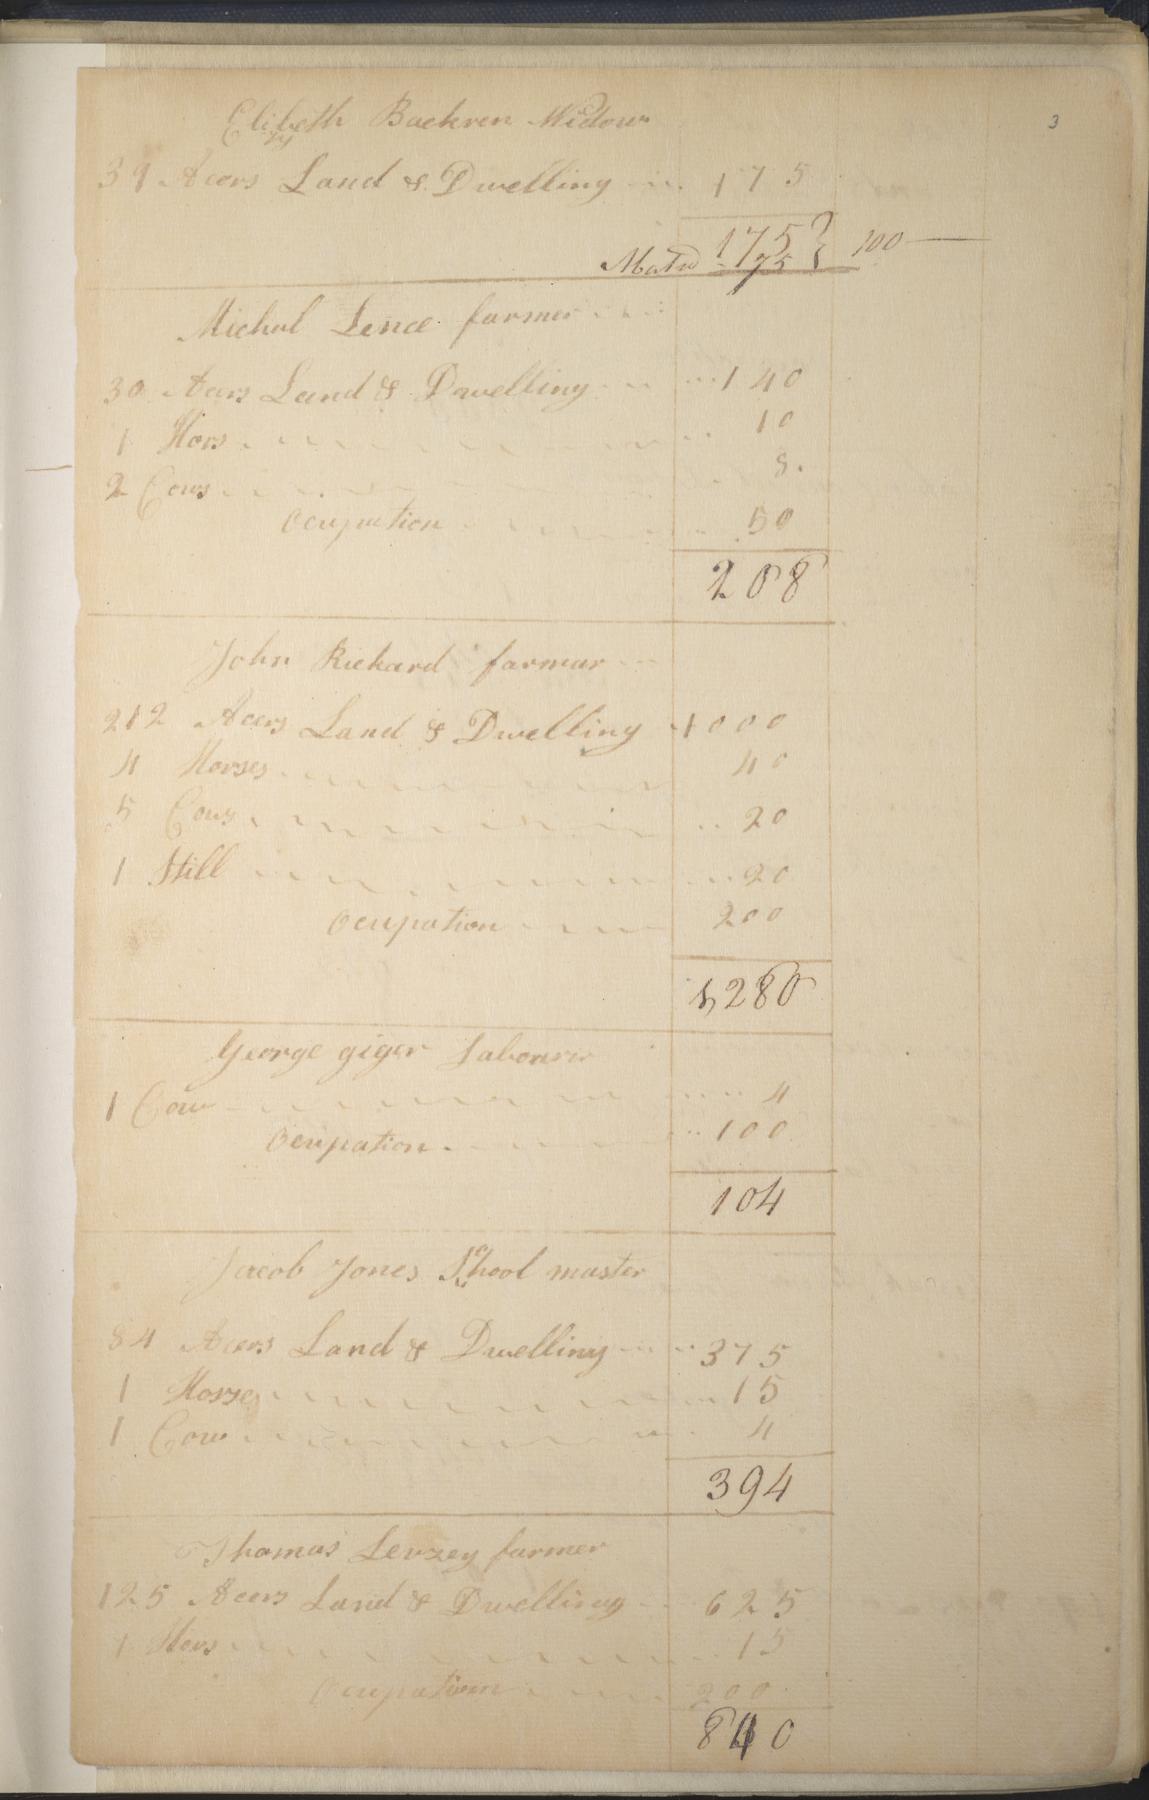 3
Elizbeth Backren Widow
39 Acers Land & Dwelling 175
175 } 100
75
Michal Lence farmer
30 Acers Land & Dwelling 140
1 Hors 10
2 Cows 8
Ocupation 50
208
John Rickard farmar
212 Acers Land & Dwelling 1000
4 Horses 40
5 Cows 20
1 Still 20
Ocupation 200
1,280
George giger Labourer
1 Cow 4
Ocupation 100
104
Jacob Jones School master
84 Acers Land & Dwelling 375
1 Horse 15
1 Cow 4
394
Thomas Levzey farmer
125 Acers Land & Dwelling 625
1 Hors 15
Ocupation 200
840